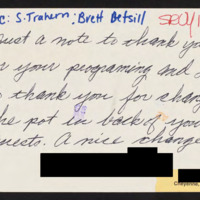 c: S. Trahern; Brett Betsill
SEO/1
ust a note to thank you
r your programing and
thank you for chang
he pot in back of you
uests. A nice change
Cheyenne,